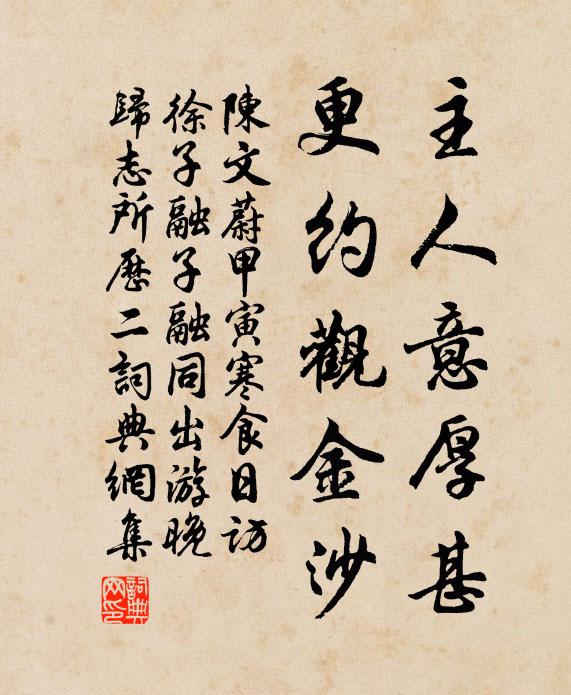 主人意厚甚
更約觀金沙
陳文蔚甲寅寒食日訪
徐子融子融同出游晚
歸志所歷二詞典網集
詞典網印